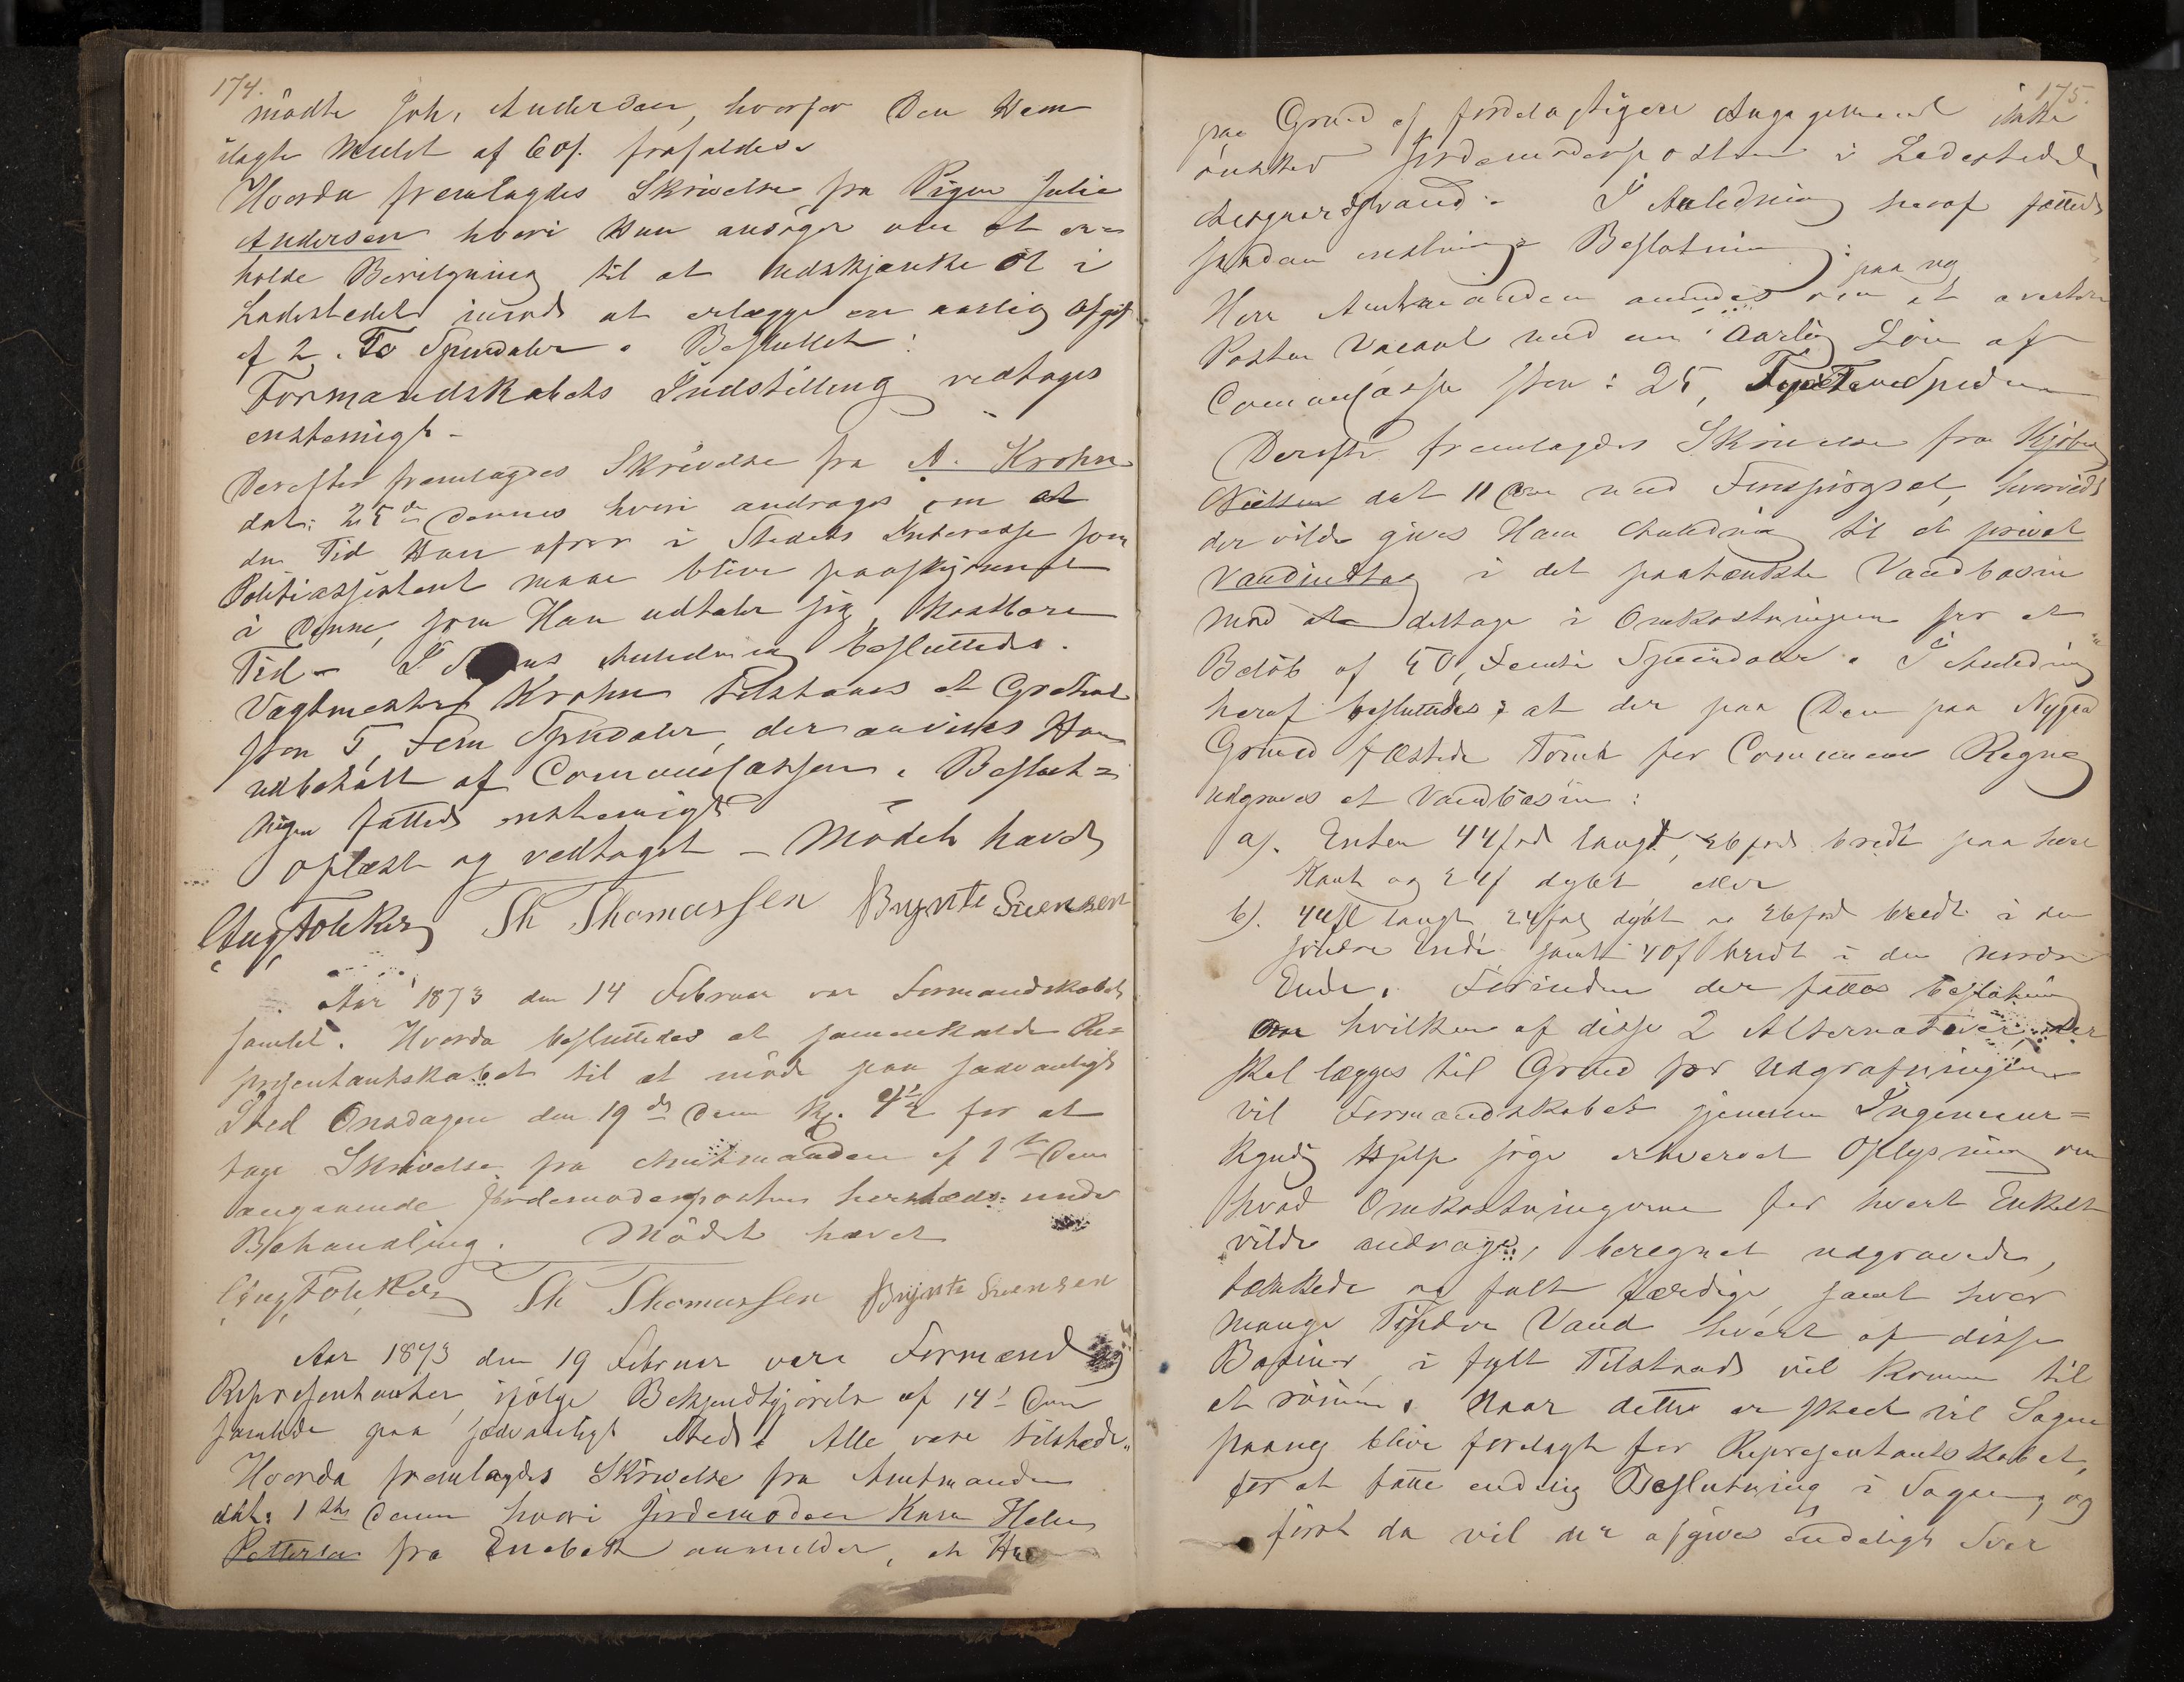 174.
mödte Joh, Andersen, hvorfor Den Ham
ilagte Mulct af 60s. frafaldes.
Hvorda fremlagdes Skrivelse fra Pigen Julie
Andersen hvori Hun ansöger om at er=
holde Bevilgning til at udskjænke Öl i
Ladestedet imod at erlægge en aarlig Afgift
af 2. To Speciedaler. Besluttet:
Formandskabets Indstilling vedtages
enstemigt -
Derefter fremlagdes Skrivelse fra A. Krohn
dat: 25de dennes hvori andrages om at
den Tid Han offrer i Stedets Interesse som
Politiassistent maae blive paaskjönnet
i denne, som Han udtaler sig, kostbare
Tid - I Anledning besluttedes.
Vagtmester Krohn tilstaaes et Gratiale
stor 5, Fem Speciedaler, der anvises Ham
udbetalt af Communecassen. Beslut=
ningen fattedes enstemigt
Oplæst og vedtaget - Mödet hævet
Aug Folkker Th Thomassen Brynte Svensen
Aar 1873 den 14 Februar var Formandskabet
samlet. Hvorda besluttedes at sammenkalde Re=
præsentantskabet til at möde paa sædvanligt
Sted Onsdagen den 19de denne Kl. 4½ for at
tage Skrivelse fra Amtmanden af 1ste denne
angaaende Jordemoderposten hersteds under
Behandling. Mödet hævet
Aug Folkker Th Thomassen Brynte Svensen
Aar 1873 den 19 Februar vare Formænd og
Repræsentanter, ifölge Bekjendtgjörelse af 14de denne
samlede paa sædvanligt Sted. Alle vare tilstede.
Hvorda fremlagdes Skrivelse fra Amtmanden
dat. 1ste denne hvori Jordemoder Karen Helene
Pettersen fra Enebak anmelder, at Hun
175.
paa Grund af fordelagtigere Engagement ikke
önsker Jordemoderposten i Ladestedet
Aasgaardstrand. I Anledning heraf fattedes
saadan enstemig Beslutning:
paa ny
Herr Amtmanden anmodes om at avertere
Posten vacant med en aarlig Lön af
Communecassen stor: 25, Speciedaler
Derefter fremlagdes Skrivelse fra
Nielsen dat 11 denne med Forespörgsel, hvorvidt
der vilde gives Ham Anledning til et privat
Vandindtag i det paatænkte Vandbasin
mod at deltage i Omkostningen for et
Belöb af 50, Femti Speciedaler. I Anledning
heraf besluttedes; at der paa Den paa Nygaard
Grund fæstede Tomt for Communens Regning
udgraves et Vandbasin:
a). Enten 44 fod langt, 26 fod bredt paa hver
Kant og 24f dybt eller
b). 44f langt 24 fod dybt og 26 fod bredt i den
söndre Ende samt 40f bredt i den nordre
Ende. Forinden der fattes Beslutning
om hvilken af disse 2 Alternativer, der
skal lægges til Grund for Udgravningen
vil Formandskabet gjennem Ingenieur=
kyndig Hjelp söge erhvervet Oplysning om
hvad Omkostningerne for hvert Enkelt
vilde andrage, beregnet udgravede,
tækkede og fuldt færdige, samt hvor
mange Tönder Vand hvert af disse
Basiner i fyldt Tilstand vil komme til
at römme. Naar dette er skeet vil Sagen
paany blive forelagt for Repræsentantskabet,
for at fatte endelig Beslutning i Sagen, og
först da vil der afgives endeligt Svar